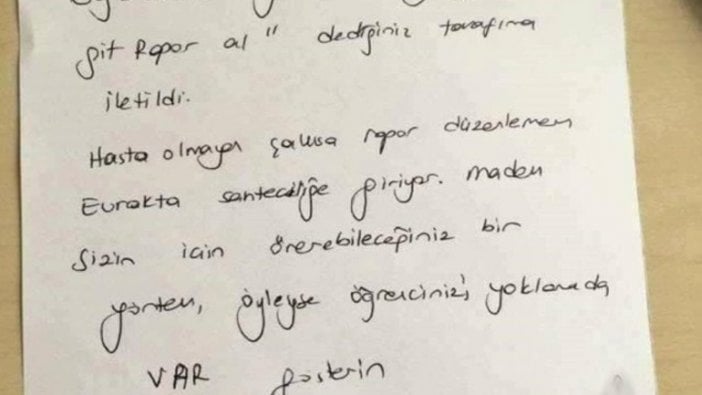 git Rapor al" dediğiniz tarafıma
iletildi.
Hasta olmayan şahısa rapor düzenlemem
Evrakta sahteciliğe giriyor. madem
Sizin için önerebileceğiniz bir
yöntem, öyleyse öğrencinizi, yoklamada
VAR gösterin